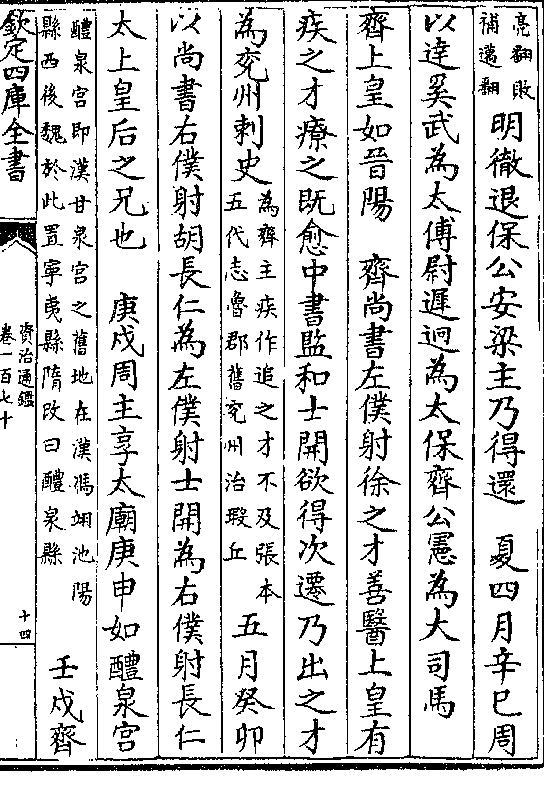 亮翻敗
補邁翻
明徹退保公安梁主乃得還　夏四月辛巳周
以達奚武為太傅尉遲迥為太保齊公憲為大司馬
齊上皇如晉陽　齊尚書左僕射徐之才善醫上皇有
疾之才療之既愈中書監和士開欲得次遷乃出之才
為兖州刺史
為齊主疾作追之才不及張本
五代志魯郡舊兖州治瑕丘
五月癸卯
以尚書右僕射胡長仁為左僕射士開為右僕射長仁
太上皇后之兄也　庚戌周主享太廟庚申如醴泉宮
醴泉宮即漢甘泉宮之舊地在漢馮翊池陽
縣西後魏於此置寧夷縣隋改曰醴泉縣
壬戌齊
欽定四庫全書
資治通鑑
卷一百七十
十四